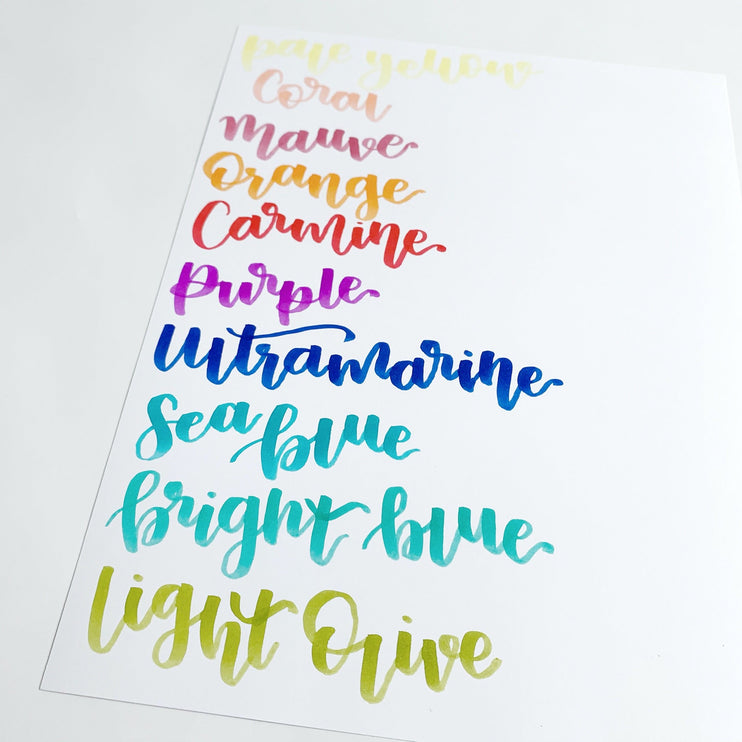 pale yellow
Coral
mauve
Orange
Carmine
purple
Ultramarine
Sea blue
bright blue
light Olive